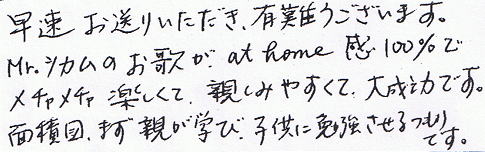 早速 お送りいただき、有難うございます。
Mr.シカムの お歌が at home 感 100%で
メチャメチャ 楽しくて、親しみやすくて、大成功です。
面積図、まず 親が学び、子供に勉強させるつもり
です。